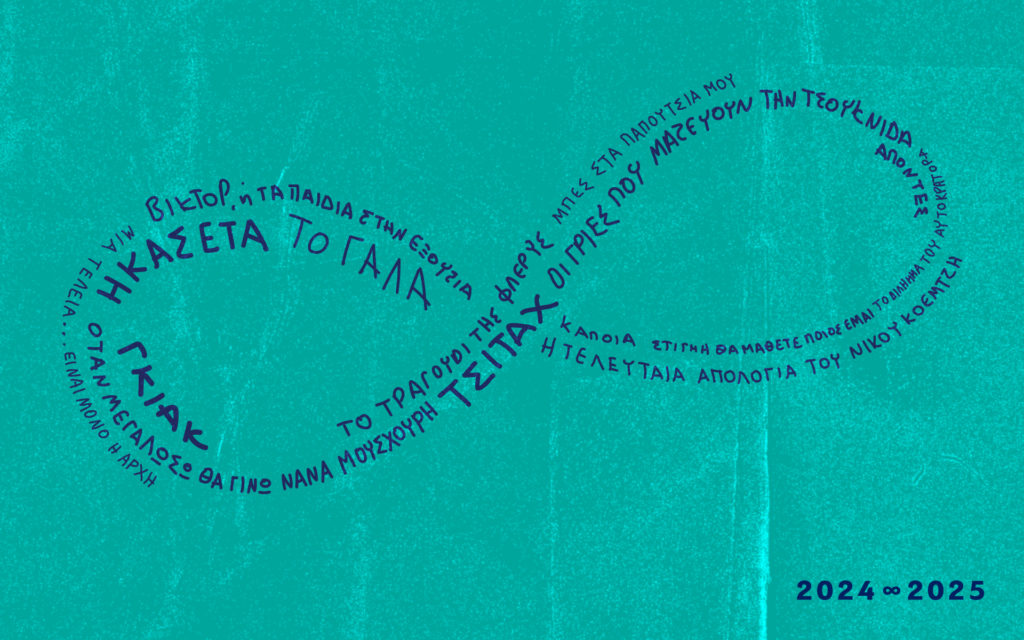 ΒΙΚΤΟΡ, ή ΤΑ ΠΑΙΔΙΑ ΣΤΗΝ ΕΞΟΥΣΙΑ
ΗΚΑΣΕΤΑ
ΤΟ ΓΑΛΑ
ΜΙΑ ΤΕΛΕΙΑ... ΕΙΝΑΙ ΜΟΝΟ Η ΑΡΧΗ
ΓΚΙΑΚ
ΟΤΑΝ ΜΕΓΑΛΩΣΩ ΘΑ ΓΙΝΩ ΝΑΝΑ ΜΟΥΣΧΟΥΡΗ
ΤΟ ΤΡΑΓΟΥΔΙ ΤΗΣ ΦΛΕΡΥΣ
ΤΣΙΤΑΧ
ΜΠΕΣ ΣΤΑ ΠΑΠΟΥΤΣΙΑ ΜΟΥ
ΟΙ ΓΡΙΕΣ ΠΟΥ ΜΑΖΕΥΟΥΝ ΤΗΝ ΤΣΟΥΚΝΙDΑ
ΑΠΟΝΤΕΣ
ΚΑΠΟΙΑ ΣΤΙΓΜΗ ΘΑ ΜΑΘΕΤΕ ΠΟΙΟΣ ΕΙΜΑΙ
ΤΟ ΔΙΛΗΜΜΑ ΤΟΥ ΑΥΤΟΚΡΑΤΟΡΑ
Η ΤΕΛΕΥΤΑΙΑ ΑΠΟΛΟΓΙΑ ΤΟΥ ΝΙΚΟΥ ΚΟΕΜΤΖΗ
2024∞2025